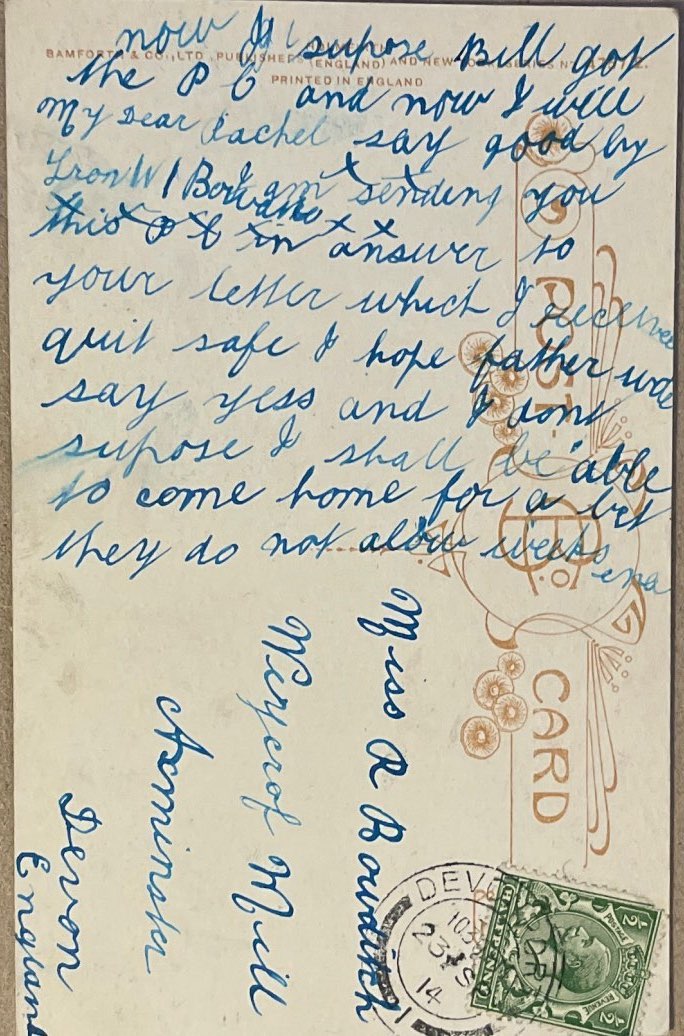 now I supose Bill got
BAMFORTH & CO., LTD., PUBLISHERS (ENGLAND) AND NEW YORK. SERIES NO.
PRINTED IN ENGLAND
the P C and now I will
My Dear Rachel say good by
From W Bowditch I am sending you
this P C in answer to
your letter which I received
quit safe I hope father
say yess and I dont
supose I shall be able
to come home for a bit
they do not allow weeks
POST
CARD
Miss R Bowditch
Weycrof Mill
Axminster
Devon
England
DEVONPORT
10.30
23 SP
14
POSTAGE
REVENUE
1/2 D
HALFPENNY